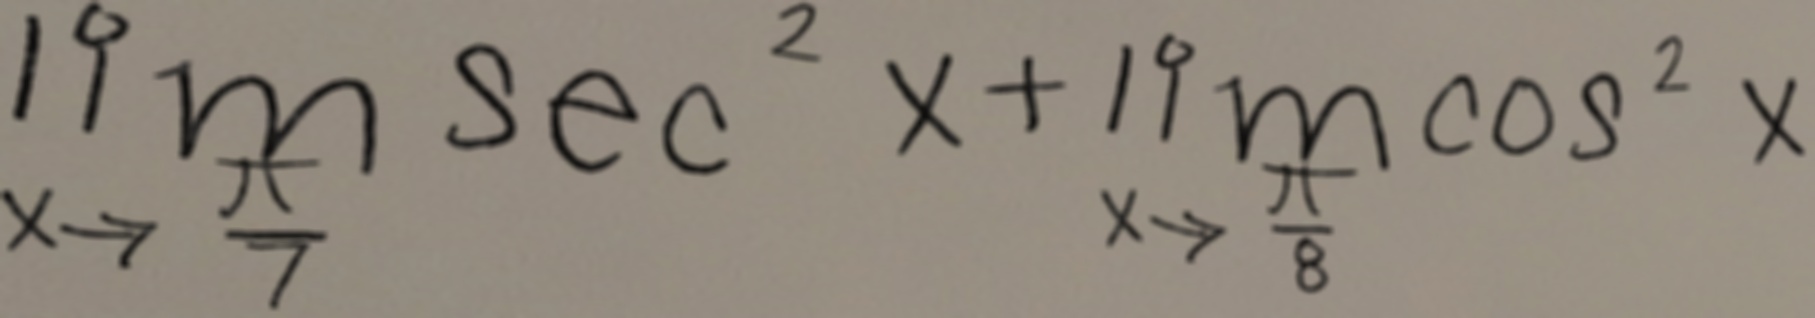 \lim_{x \to \frac{\pi}{7}} \sec^2 x + \lim_{x \to \frac{\pi}{8}} \cos^2 x